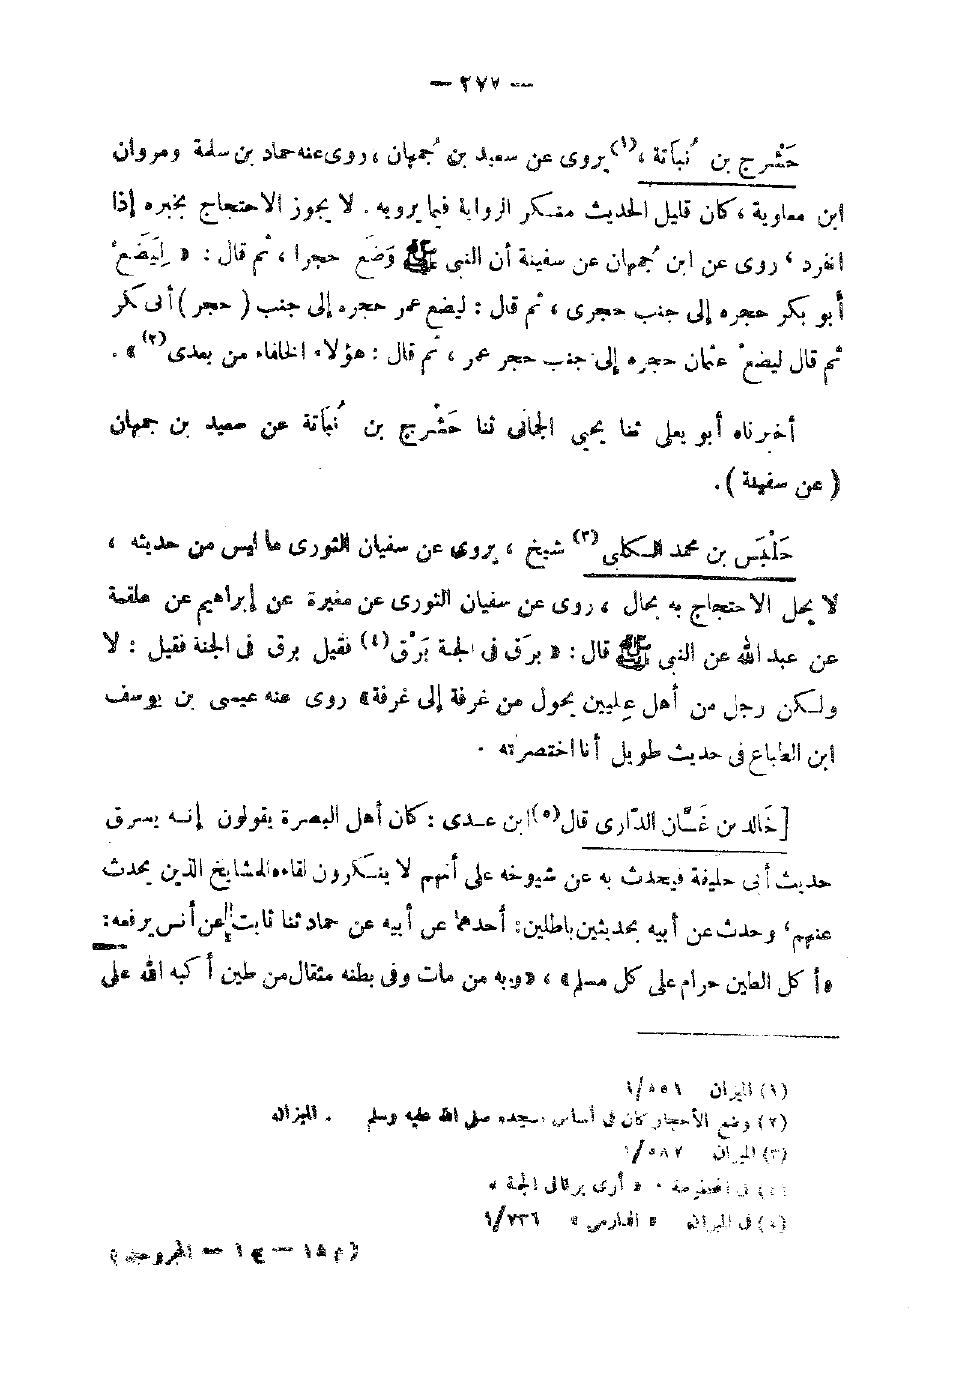 — ٢٧٧ —
حَشْرج بن نُباَتة ،(١) يروى عن سعيد بن جُمهان ، روى عنه حماد بن سلمة ومروان
ابن معاوية ، كان قليل الحديث منكر الرواية فيما يرويه . لا يجوز الاحتجاج بخبره إذا
انفرد ، روى عن ابن جُمهان عن سفينة أن النبي ﷺ وَضَع حجرا ، ثم قال : « لِيَضَعْ
أبو بكر حجره إلى جنب حجرى ، ثم قال : ليضع عمر حجره إلى جنب ( حجر ) أبى بكر
ثم قال ليضعْ عثمان حجره إلى جنب حجر عمر ، ثم قال : هؤلاء الخلفاء من بعدى(٢) » .
أخبرناه أبو يعلى ثنا يحيى الحمانى ثنا حَشْرج بن نُباَتة عن سعيد بن جمهان
( عن سفينة ) .
حَلْبَس بن محمد الكلبى(٣) شيخ ، يروى عن سفيان الثورى ما ليس من حديثه ،
لا يحل الاحتجاج به بحال ، روى عن سفيان الثورى عن مغيرة عن إبراهيم عن علقمة
عن عبد الله عن النبي ﷺ قال : « برَق فى الجنة بَرْق(٤) فقيل برق فى الجنة فقيل : لا
ولكن رجل من أهل عِليين يحول من غرفة إلى غرفة» روى عنه عيسى بن يوسف
ابن الطباع فى حديث طويل أنا اختصرته .
[خَالد بن غَسَّان الدّارى قال(٥) ابن عدى : كان أهل البصرة يقولون إنه يسرق
حديث أبى خليفة فيحدث به عن شيوخه على أنهم لا ينكرون لقاءه المشايخ الذين يحدث
عنهم، وحدث عن أبيه بحديثين باطلين : أحدهما عن أبيه عن حماد ثنا ثابت عن أنس يرفعه :
«أكل الطين حرام على كل مسلم» ، «وبه من مات وفى بطنه مثقال من طين أكبه الله على
(١) الميزان ١/٥٥١
(٢) وضع الأحجار كان فى أساس مسجده صلى الله عليه وسلم . الميزان
(٣) الميزان ١/٥٨٧
(٤) فى المخطوطة . « أرى برقا فى الجنة »
(٥) فى الميزان « الدارمى » ١/٦٣٦
( م ١٥ — ج ١ — المجروحين )